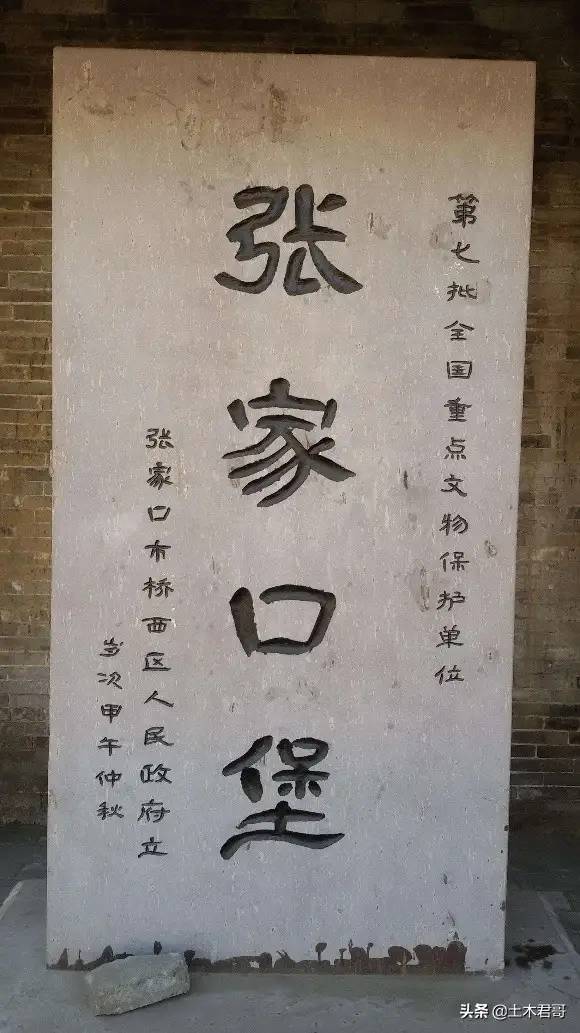 第七批全国重点文物保护单位
张家口堡
张家口市桥西区人民政府立
岁次甲午仲秋
头条 @土木君哥